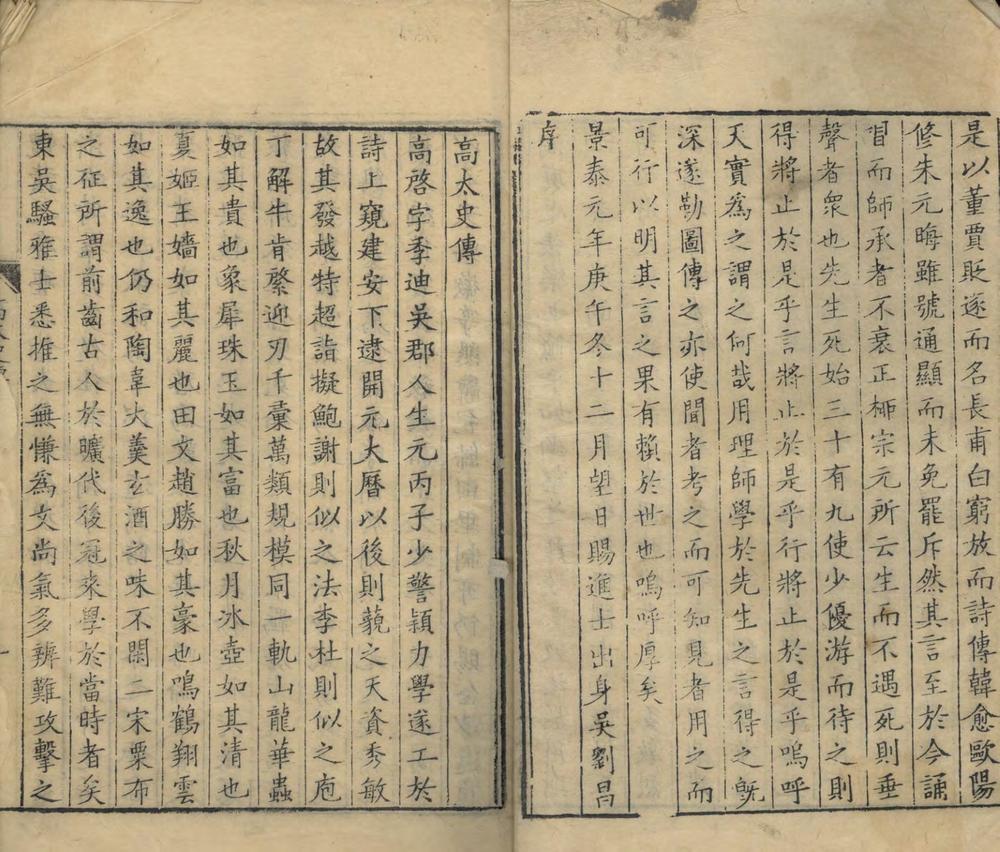 是以董賈貶遂而名長甫白窮放而詩傳韓愈歐陽
修朱元晦雖號通顯而未免罷斥然其言至於今誦
習而師承者不衰正栁宗元所云生而不遇死則垂
聲者衆也先生死始三十有九使少優游而待之則
得將止於是乎言將止於是乎行將止於是乎嗚呼
天實為之謂之何哉用理師學於先生之言得之旣
深遂勒圖傳之亦使聞者考之而可知見者用之而
可行以明其言之果有賴於世也嗚呼厚矣
景泰元年庚午冬十二月望日賜進士出身吳劉昌
序
高太史傳
高啓字季迪吳郡人生元丙子少警穎力學遂工於
詩上窺建安下逮開元大曆以後則藐之天資秀敏
故其發越特超詣擬鮑謝則似之法李杜則似之庖
丁解牛肯綮迎刃千彙萬類規模同一軌山龍華蟲
如其貴也象犀珠玉如其富也秋月冰壺如其清也
夏姬王嬙如其麗也田文趙勝如其豪也鳴鶴翔雲
如其逸也仍和陶韋大羹玄酒之味不閑二宋粟布
之征所謂前齒古人於曠代後冠來學於當時者矣
東吳騷雅士悉推之無慊為文尚氣多辨難攻擊之